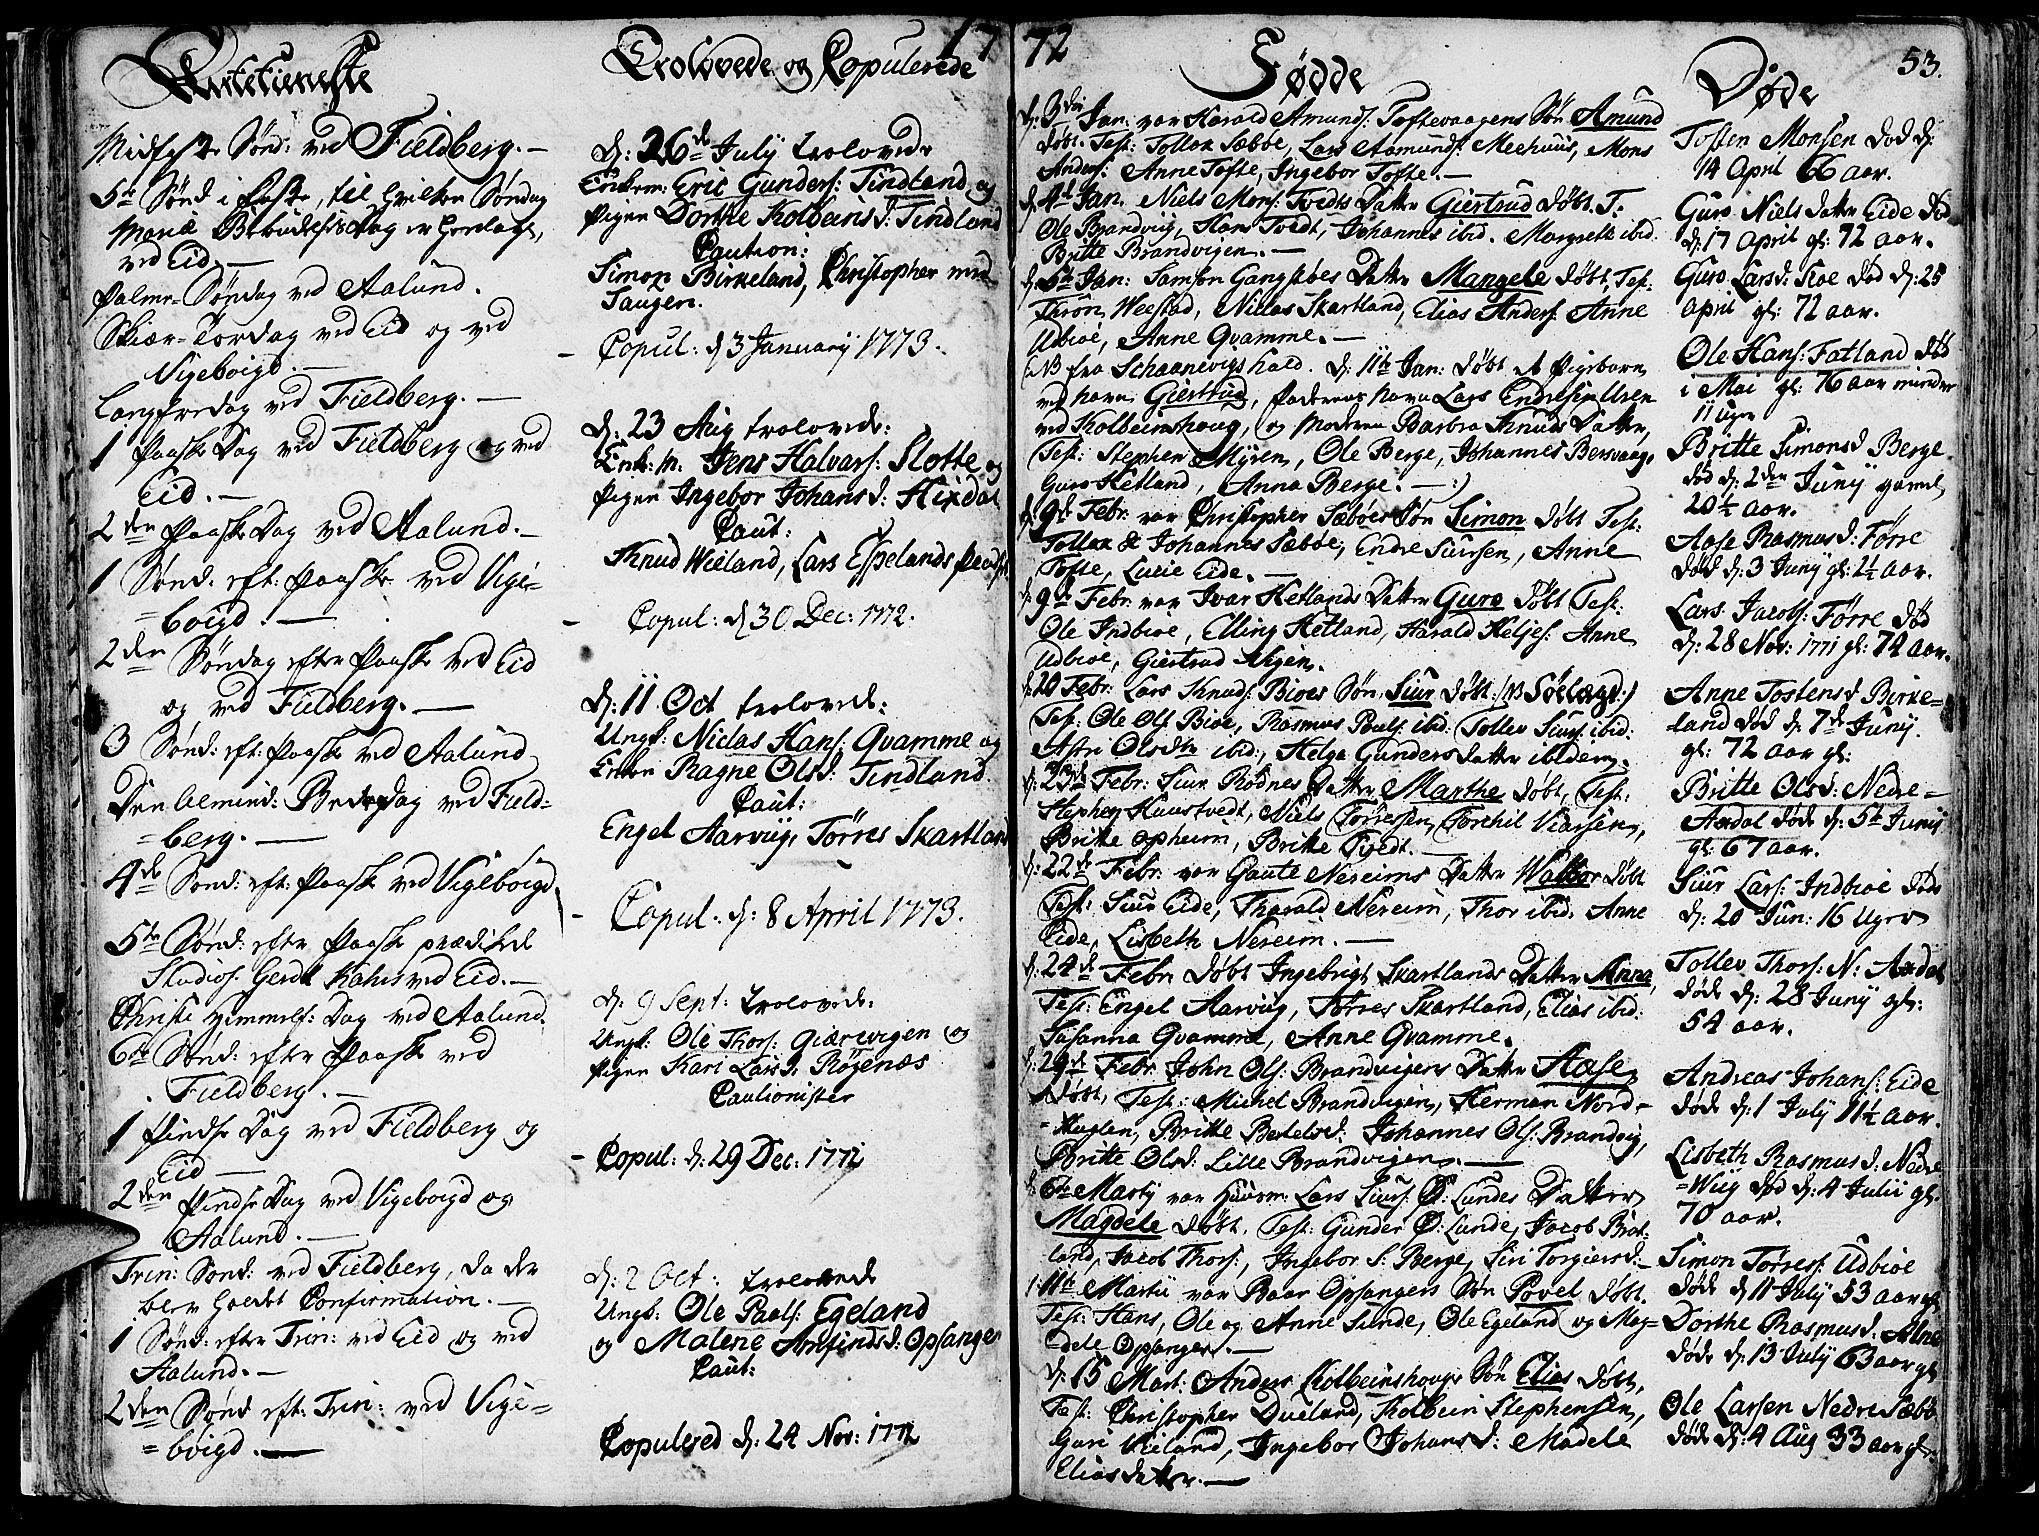 1772
53.
Kirketieneste
Midfaste Sønd: ved Fieldberg. —
5te Sønd i Faste, til hvilken Søndag
Mariæ Bebudelses dag er henlagt,
ved Eid. —
Palme-Søndag ved Aalund.
Skiær-Torsdag ved Eid og ved
Vigebøigd. —
Langfredag ved Fieldberg. —
1 Paaske Dag ved Fieldberg og ved
Eid. —
2den Paaske Dag ved Aalund. —
1 Sønd: eft: Paaske ved Vige-
=bøigd. —
2den Søndag efter Paaske ved Eid
og ved Fieldberg. —
3 Sønd: eft: Paaske ved Aalund
Den almind: Bededag ved Field-
=berg. —
4de Sønd: eft: Paaske ved Vigebøigd
5te Sønd: efter Paaske prædiked
Studios: Gerdt Kahrs ved Eid. —
Christi Himmelf: Dag ved Aalund.
6te Sønd: efter Paaske ved
Fieldberg. —
1 Pindse Dag ved Fieldberg og
Eid —
2den Pindse Dag ved Vigebøigd og
Aalund. —
Trin: Sønd: ved Fieldberg, da der
blev holdet Confirmation. —
1 Sønd: efter Trin: ved Eid og ved
Aalund. —
2den Sønd eft: Trin: ved Vige-
=bøigd. —
Trolovede og Copulerede
d: 26de July trolovede
Enkem: Eric Gunders: Tindland og
Pigen Dorthe Kolbeinsd: Tindland
Caution:
Simon Birkeland, Christopher
Taugen.
— Copul: d 3 January 1773.
d: 23 Aug trolovede:
Enk: m: Jens Halvars: Slotte og
Pigen Ingebor Johansd: Hixdal
Caut:
Knud Wieland, Lars Espelands
— Copul: d 30 Dec: 1772.
d: 11 Oct trolovede:
Ungk: Niclas Hans: Qvamme og
Enken Ragne Olsd: Tindland
Caut:
Engel Aarvig, Tørres Skartland
— Copul: d: 8 April 1773.
d: 9 Sept: trolovede:
Ungk: Ole Thors: Giærevigen og
Pigen Kari Larsd. Røgenæs
Cautionister
— Copul: d: 29 Dec: 1772
d: 2 Oct: trolovede
Ungk: Ole Paals: Egeland
og Malene Arnfindsd: Opsanger
Caut:
Copulered d: 24 Nov: 1772
Fødde
d: 3die Jan: var Harald Amunds: Toftevaagens Søn Amund
døbt. Test: Tollox Sæbøe, Lars Aamunds: Meehuus, Mons
Anders: Anne Tofte, Ingebor Tofte. —
d. 4de Jan. Niels Mons: Tvedts Datter Giertrud døbt. T:
Ole Brandvig, Hans Tvedt, Johannes ibid. Margrete ibid.
Britte Brandvigen. —
d: 5te Jan: Samson Gangstøes Datter Mangele døbt, Test:
Thron Weestad, Niclas Skartland, Elias Anders: Anne
Udbioe, Anne Qvamme. —
(NB fra Schaanevigs Kald. d: 11te Jan: døbt et Pigebarn
ved navn Giertrud, Faderens navn Lars Endresen Uren
ved Kolbeinshoug, og Moderen Barbra Knuds Datter,
Test: Stephen Myren, Ole Berge, Johannes Bersvaag,
Guro Hetland, Anna Berge. — :)
d: 9de Febr: var Christopher Sæbøes Søn Simon døbt Test:
Tollox & Johannes Sæbøe, Endre Siursen, Anne
Tofte, Lucie Eide. —
d: 9de Febr: var Ivar Hetlands Datter Guro døbt Test:
Ole Indbioe, Elling Hetland, Harald Heljes: Anne
Udbioe, Giertrud
d: 20 Febr: Lars Knuds: Bioes Søn Siur døbt :/NB Søelægd:/
Test. Ole Ols: Bioe, Rasmus Pauls: ibid. Tollev Siurs: ibid:
Astri Olsdtr ibid:, Helga Gunders datter ibidem.
d: 23de Febr: Siur Rødnes Datter Marthe døbt, Test:
Stephen Haustvedt, Niels Torresen, Torkil Viarsen,
Britte Opheim, Britte Tvedt.
d: 22de Febr: var Gaute Nereims Datter Walbor døbt
Test: Siur Eide, Tharald Nereim, Thor ibid. Anne
Eide, Lisbeth Nereim. —
d: 24de Febr døbt Ingebrigt Skartlands Datter Anna,
Test: Engel Aarvig, Tørres Skartland, Elias ibid:
Susanna Qvamme, Anne Qvamme.
d: 29de Febr John Ols: Brandvigens Datter Aase
døbt, Test: Michel Brandvigen, Herman Nord-
=Huglen, Britte Bertelsd: Johannes Ols: Brandvig,
Britte Olsd: Lille Brandvigen. —
d: 6te Martij var Huusm: Lars Siurs: Ø: Lundes Datter
Magdele døbt. Test: Gunder Ø: Lunde, Jacob Brat-
land, Jacob Thors:, Ingebor S: Berge, Siri Torgiersd: —
d: 11te Martii var Baar Opsangers Søn Povel døbt.
Test: Hans, Ole og Anne Sunde, Ole Egeland og Mag-
dele Opsanger. —
d: 15 Mart: Anders Kolbeinshougs Søn Elias døbt,
Test: Christopher Dueland, Kolbein Stephensen,
Guri Vieland, Ingebor Johansd: Madele
Elias datter. —
Døde
Tosten Monsen død d:
14 April 66 aar.
Guro Niels datter Eide død
d: 17 April gl: 72 aar.
Guro Larsd: Roe død d: 25
April gl: 72 aar.
Ole Hans: Fatland død
i Mai gl: 76 aar mindre
11 Uger
Britte Simonsd Berge
død d: 2den Juny gaml
20½ aar.
Aase Rasmusd: Førre
død d: 3 Juny gl: 1½ aar.
Lars Jacobs: Førre død
d: 28 Nov: 1771 gl: 74 aar.
Anne Tostensd Birke=
land død d: 7de Juny.
gl: 72 aar gl:
Britte Olsd: Nedre-
Axdal døde d: 5te Junij
gl: 67 aar.
Siur Lars: Indbioe døde
d: 20 Jun: 16 Uger
Tollev Thors: N: Axdal
døde d: 28 Junij gl:
54 aar.
Andreas Johans: Eide
døde d: 1 July 11½ aar.
Lisbeth Rasmusd: Nedre
=Wiig død d: 4 Julii gl:
70 aar.
Simon Tørres: Udbioe
døde d 11 July 53 aar gl
Dorthe Rasmusd: Alne
døde d: 13 July 63 aar gl
Ole Larsen Nedre Sæbø
døde d: 4 Aug 33 aar gl: